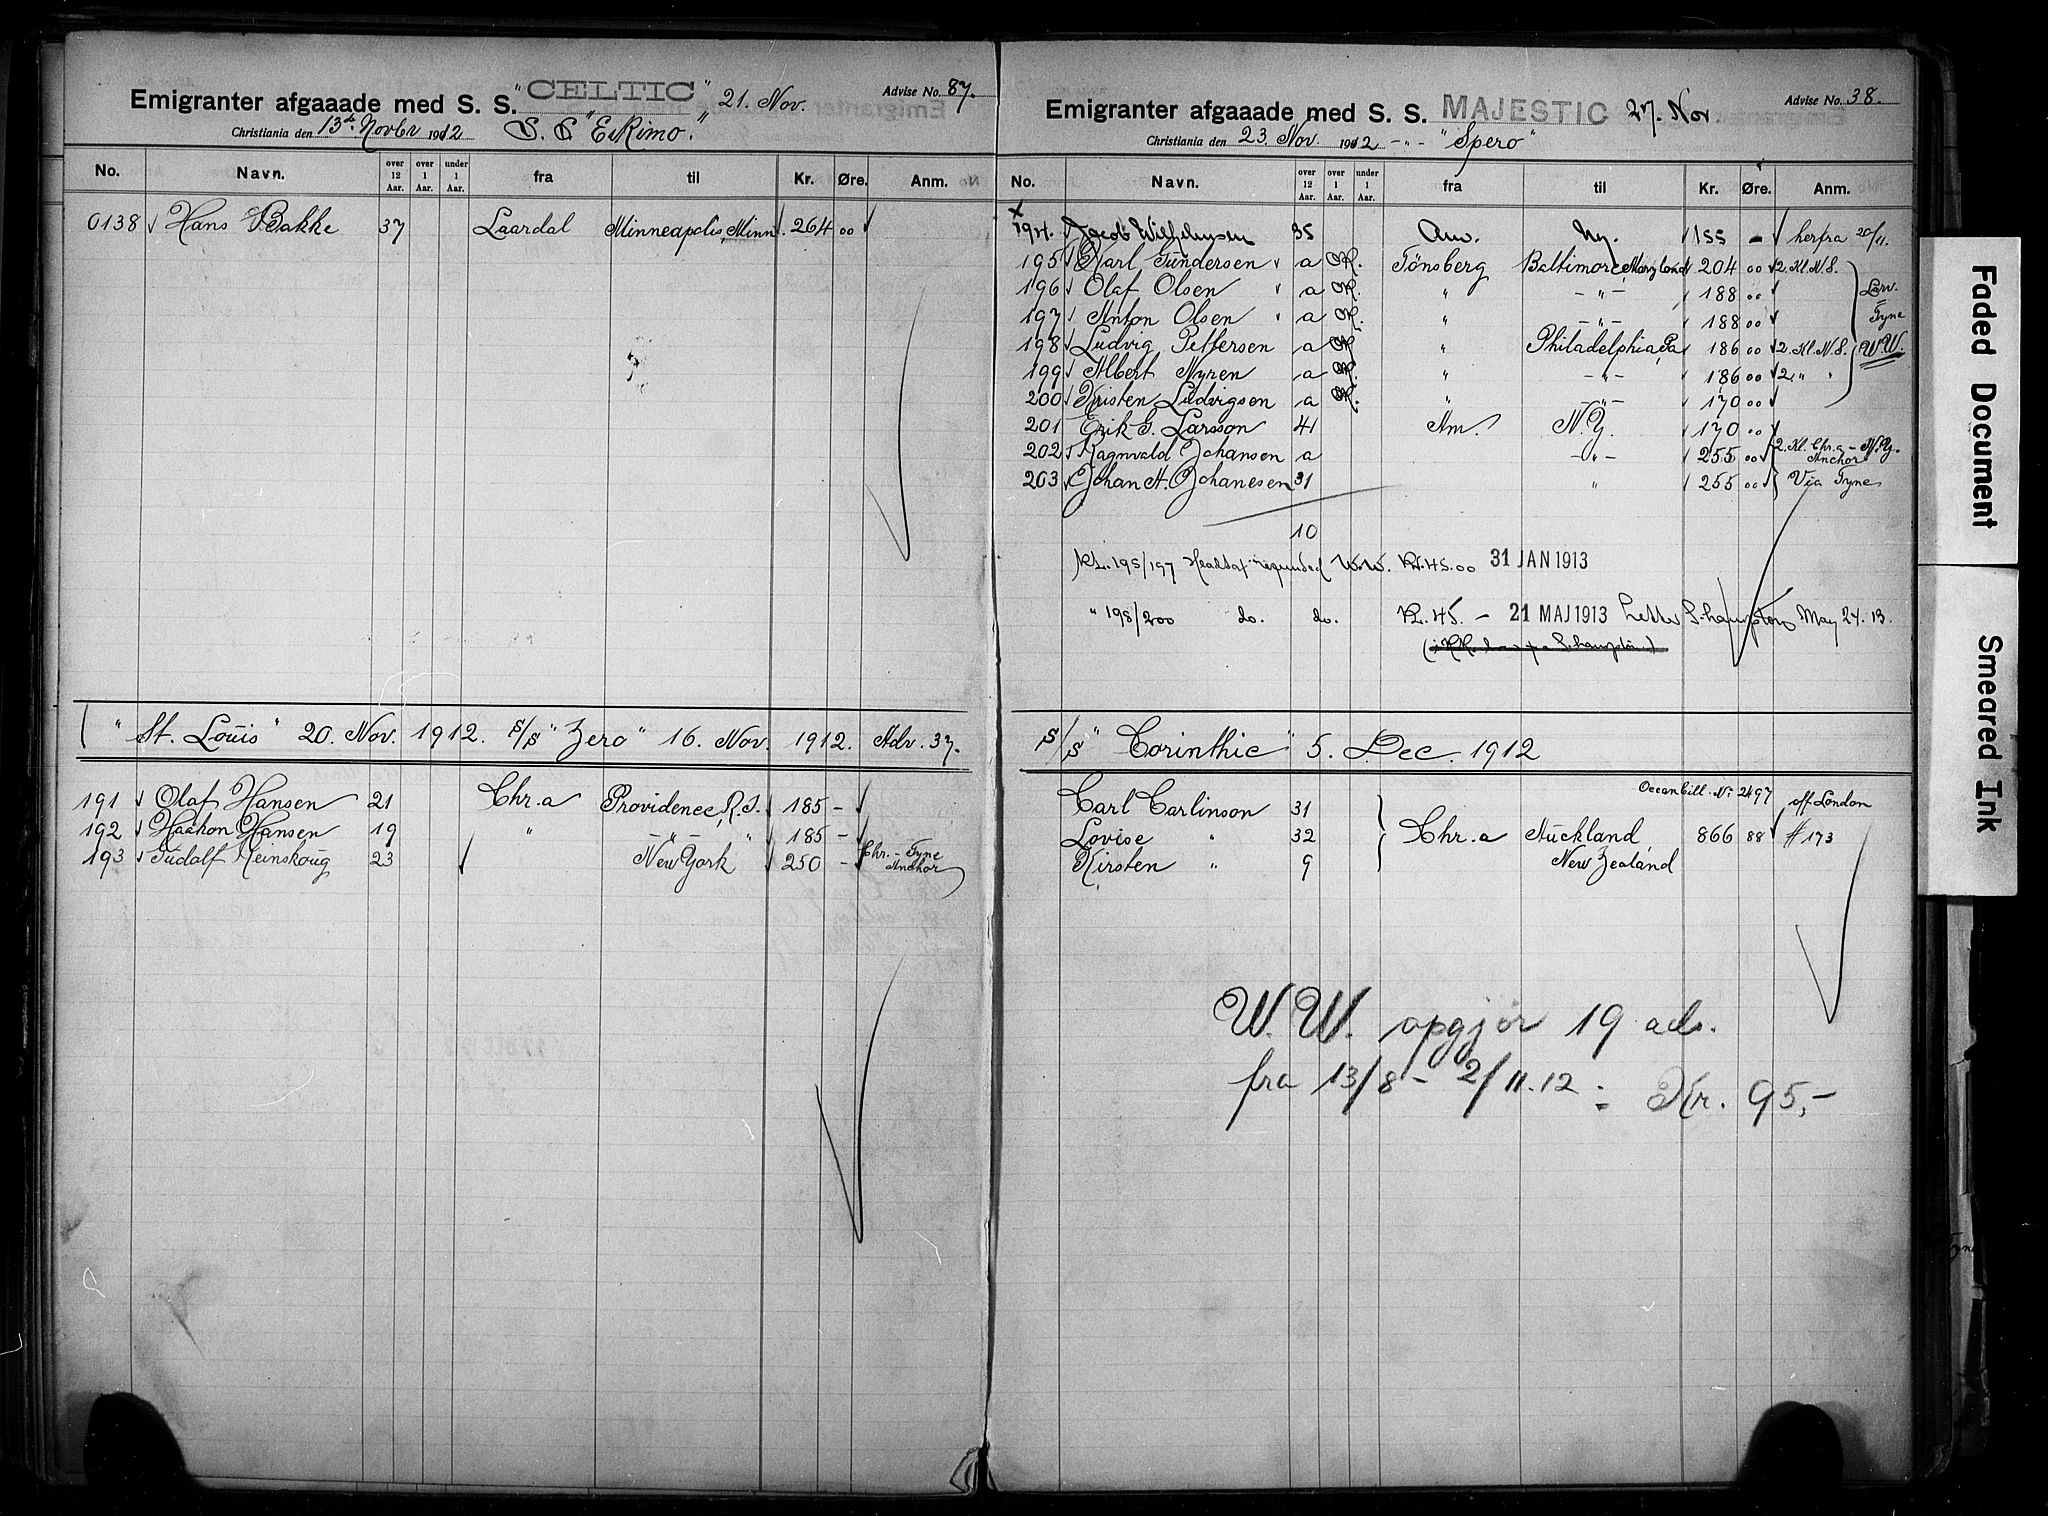 Emigranter afgaaade med S. S. "CELTIC" 21. Nov. Advise No. 87.
Christiania den 13de Novbr 1912 S. S "Eskimo."
No. Navn. over 12 Aar. over 1 Aar. under 1 Aar. fra til Kr. Øre. Anm.
0138 Hans Bakke 37 Laardal Minneapolis, Minn. 264 00
"St. Louis" 20. Nov. 1912. s/s "Zero" 16. Nov. 1912. Adv. 37.
191 Olaf Hansen 21 Chr.a Providence, R.I. 185 -
192 Haakon Hansen 19 " - " - " 185 -
193 Tudolf Reinskoug 23 New York 250 - Chr. - Tyne
Anchor
Emigranter afgaaade med S. S. MAJESTIC 27. Nov Advise No. 38.
Christiania den 23. Nov. 1912 - " - "Spero"
No. Navn. over 12 Aar. over 1 Aar. under 1 Aar. fra til Kr. Øre. Anm.
x
194. Jacob Wilhelmsen 35 Am. Ny. 155 - herfra 20/11.
195 Karl Gundersen a Tönsberg Baltimore, Maryland 204 00 2. Kl. N.S.
196 Olaf Olsen a " - " - 188 00 Larv.
197 Anton Olsen a " - " - 188 00 Tyne
198 Ludvig Pettersen a " Philadelphia, Pa 186 00 2. Kl. N.S. W.W.
199 Albert Nyren a " - " - 186 00 2. " "
200 Kristen Ludvigsen a " - " - 170 00
201 Erik G. Larsson 41 Am. N.Y. 170 00
202 Ragnvald Johansen a - " - 255 00 2. Kl. Chr.a - N.Y.
Anchor
203 Johan A. Johanesen 31 " 255 00 Via Tyne
10
195/197 Headtax refunded W.W. Kr. 45.00 31 JAN 1913
" 198/200 do. do. Kr. 45. - 21 MAJ 1913 Letter S.hampton May 24. 13.
s/s "Corinthic" 5. Dec. 1912
Oceanbill. No 2497
Carl Carlinson 31 off. London
Lovise " 32 Chr.a Auckland 866 88 # 173
Kirsten " 9 New Zealand
W.W. opgjör 19 ads.
fra 13/8 - 2/11.12 = Kr. 95,-
Faded Document
Smeared Ink